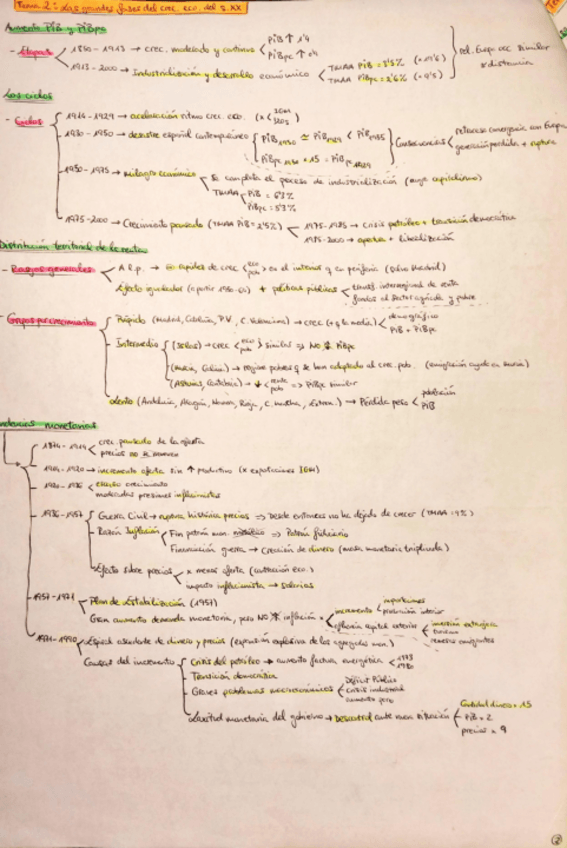 Tema 2: Las grandes fases del crec. eco. del s. XX
Aumento PIB y PIBpc
- Etapas
1850 - 1913 → crec. moderado y continuo
PIB ↑ 1'4
PIBpc ↑ 0'4
1913 - 2000 → Industrialización y desarrollo económico
TMAA PIB = 3'5%
TMAA PIBpc = 2'6% (x 9'5)
rel. Europa occ. similar
Los ciclos
- Ciclos
1914 - 1929 → aceleración ritmo crec. eco. (x IGM
1930 - 1950 → desastre español contemporáneo
PIB 1950 ≃ PIB 1929 < PIB 1935
Consecuencias
retroceso convergencia con Europa
generación perdida + ruptura
1950 - 1975 → milagro económico
Se completa el proceso de industrialización (auge capitalismo)
TMAA
PIB = 6'3%
PIBpc = 5'3%
1975 - 2000 → Crecimiento pausado (TMAA PIB = 2'5%)
1975 - 1985 → crisis petróleo + transición democrática
1985 - 2000 → apertura + liberalización
Distribución territorial de la renta
- Rasgos generales
A l.p. → ⊖ rapidez de crec < eco pob > en el interior q en periferia (salvo Madrid)
Efecto igualador (a partir 1950-60) + políticas públicas
transf. interregional de renta
fondos al sector agrícola y pobre
- Grupos por crecimiento
Rápido (Madrid, Cataluña, P.V., C. Valenciana) → crec (+ q la media)
demográfico
PIB + PIBpc
Intermedio
(Islas) → crec < eco pob > similar => NO PIBpc
(Murcia, Galicia) → regiones pobres q se han adaptado al crec. pob. (emigración ayuda en Murcia)
(Asturias, Cantabria) → ↓ < renta pob => PIBpc similar
Lento (Andalucía, Aragón, Navarra, Rioja, C. Mancha, Extrem.) → Pérdida peso
población
PIB
Tendencias monetarias
1874 - 1914
crec. pausado de la oferta
precios no
1914 - 1920 → incremento oferta sin ↑ productivo (x exportaciones IGM)
1920 - 1936
escaso crecimiento
moderadas presiones inflacionistas
1936 - 1957
Guerra Civil → ruptura histórica precios => Desde entonces no ha dejado de crecer (TMAA: 9%)
Razón Inflación
Fin patrón mon. metálico => Patrón fiduciario
Financiación guerra → Creación de dinero (masa monetaria triplicada)
Efecto sobre precios
x menor oferta
impacto inflacionista → salarios
1957 - 1971
Plan de Estabilización (1957)
Gran aumento demanda monetaria, pero NO inflación x
incremento
importaciones
producción interior
afluencia capital exterior
inversión extranjera
turismo
remesas emigrantes
1971 - 1990
Espiral ascendente de dinero y precios (expansión explosiva de los agregados mon.)
Causas del incremento
Crisis del petróleo → aumento factura energética
1973
1980
Transición democrática
Graves problemas macroeconómicos
Déficit Público
crisis industrial
aumento paro
Laxitud monetaria del gobierno → Descontrol ante mon
Cantidad dinero x 15
PIB x 2
precios x 9